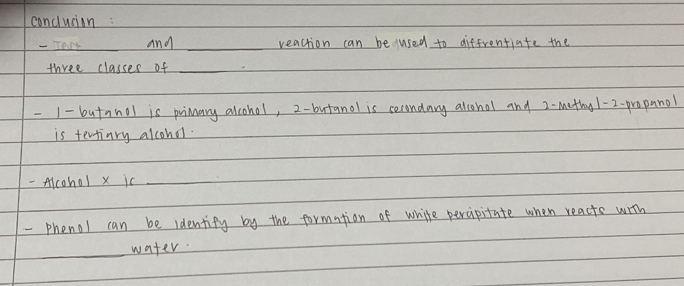 Conclusion :
- ______ and ______ reaction can be used to diffrentiate the
three classes of ______
- 1-butanol is primary alcohol, 2-butanol is secondary alcohol and 2-methyl-2-propanol
is tertiary alcohol.
- Alcohol x is ______
- Phenol can be identify by the formation of white percipitate when reacts with
______ water.